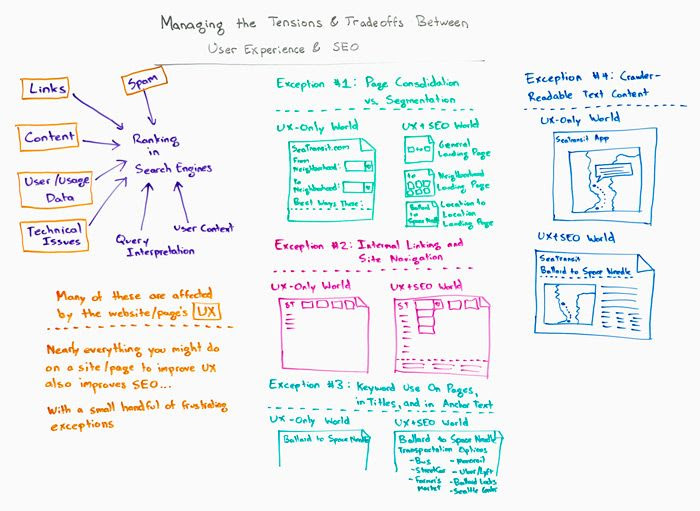 Managing the Tensions & Tradeoffs Between
User Experience & SEO
Links
Spam
Content
User/Usage
Data
Technical
Issues
Ranking
in
Search Engines
Query
Interpretation
User Context
Many of these are affected
by the website/page's UX
Nearly everything you might do
on a site/page to improve UX
also improves SEO...
With a small handful of frustrating
exceptions
Exception #1: Page Consolidation
vs. Segmentation
UX-Only World
SeaTransit.com
From
Neighborhood:
To
Neighborhood:
Best Ways There:
UX+SEO World
General
Landing Page
to
Neighborhood
Landing Page
Ballard
to
Space Needle
Location to
Location
Landing Page
Exception #2: Internal Linking and
Site Navigation
UX-Only World
ST
UX+SEO World
ST
Exception #3: Keyword Use On Pages,
in Titles, and in Anchor Text
UX-Only World
Ballard to Space Needle
UX+SEO World
Ballard to Space Needle
Transportation Options
-Bus
-Streetcar
-Farmer's
Market
-Monorail
-Uber/Lyft
-Ballard Locks
-Seattle Center
Exception #4: Crawler-
Readable Text Content
UX-Only World
SeaTransit App
UX+SEO World
SeaTransit
Ballard to Space Needle